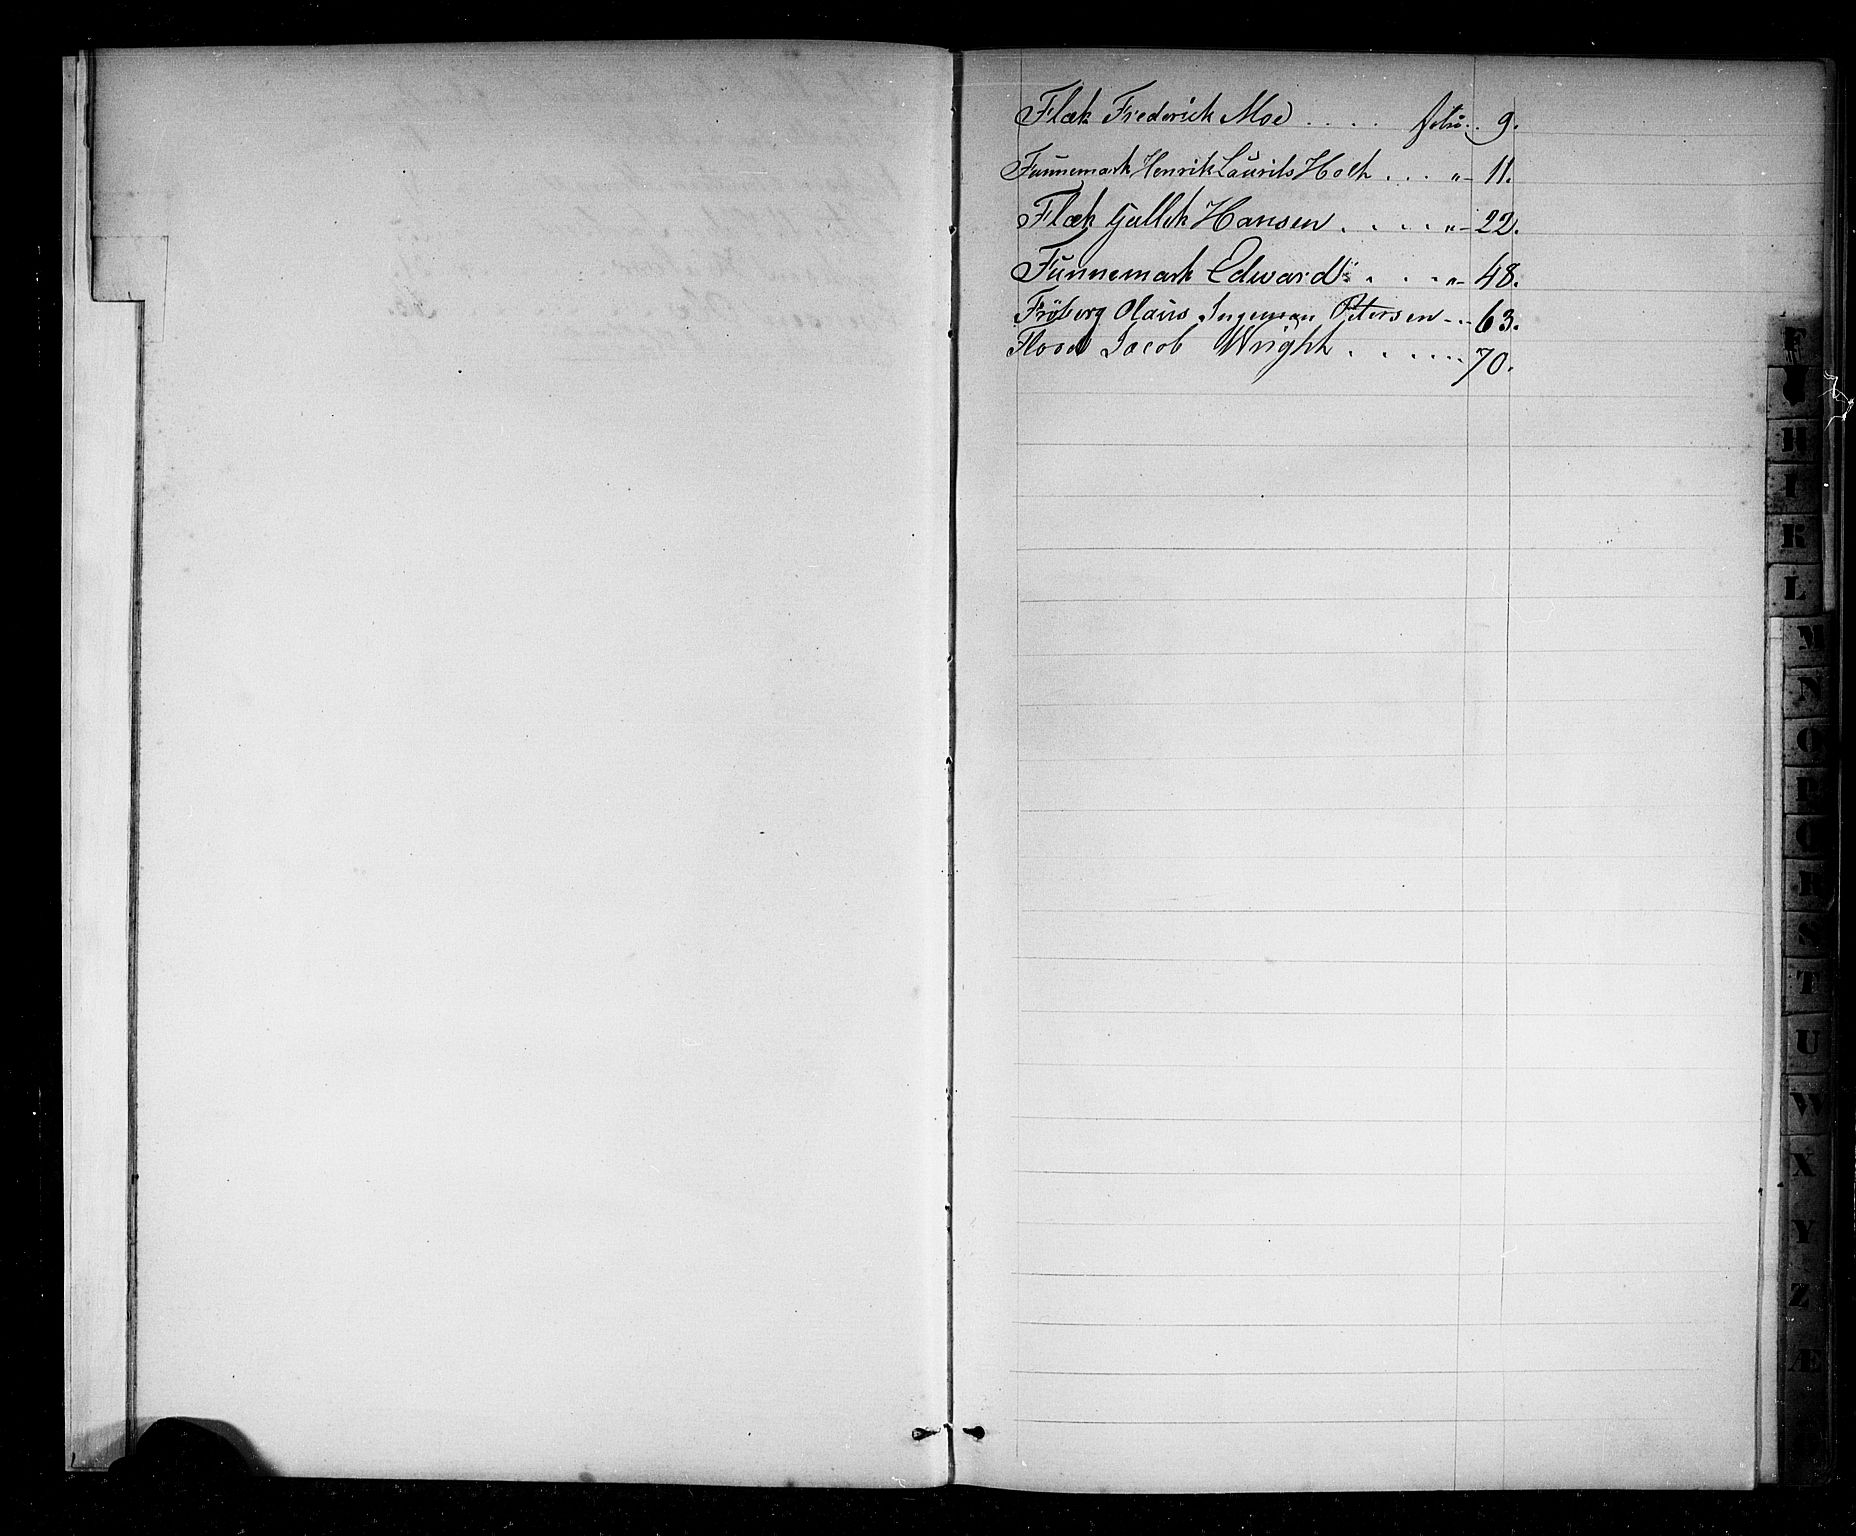 Flæk Frederick Moe . . . . folio . . 9.
Funnemark Henrik Laurits Holt . . . „ – 11.
Flæk Gullik Hansen . . . . „ – 22.
Funnemark Edward . . . „ – 48.
Fröberg Claus Ingeman Petersen - . - 63.
Flood Jacob Wright . . . . . . . 70.
F
H
I
K
L
M
N
O
P
Q
R
S
T
U
W
X
Y
Z
Æ